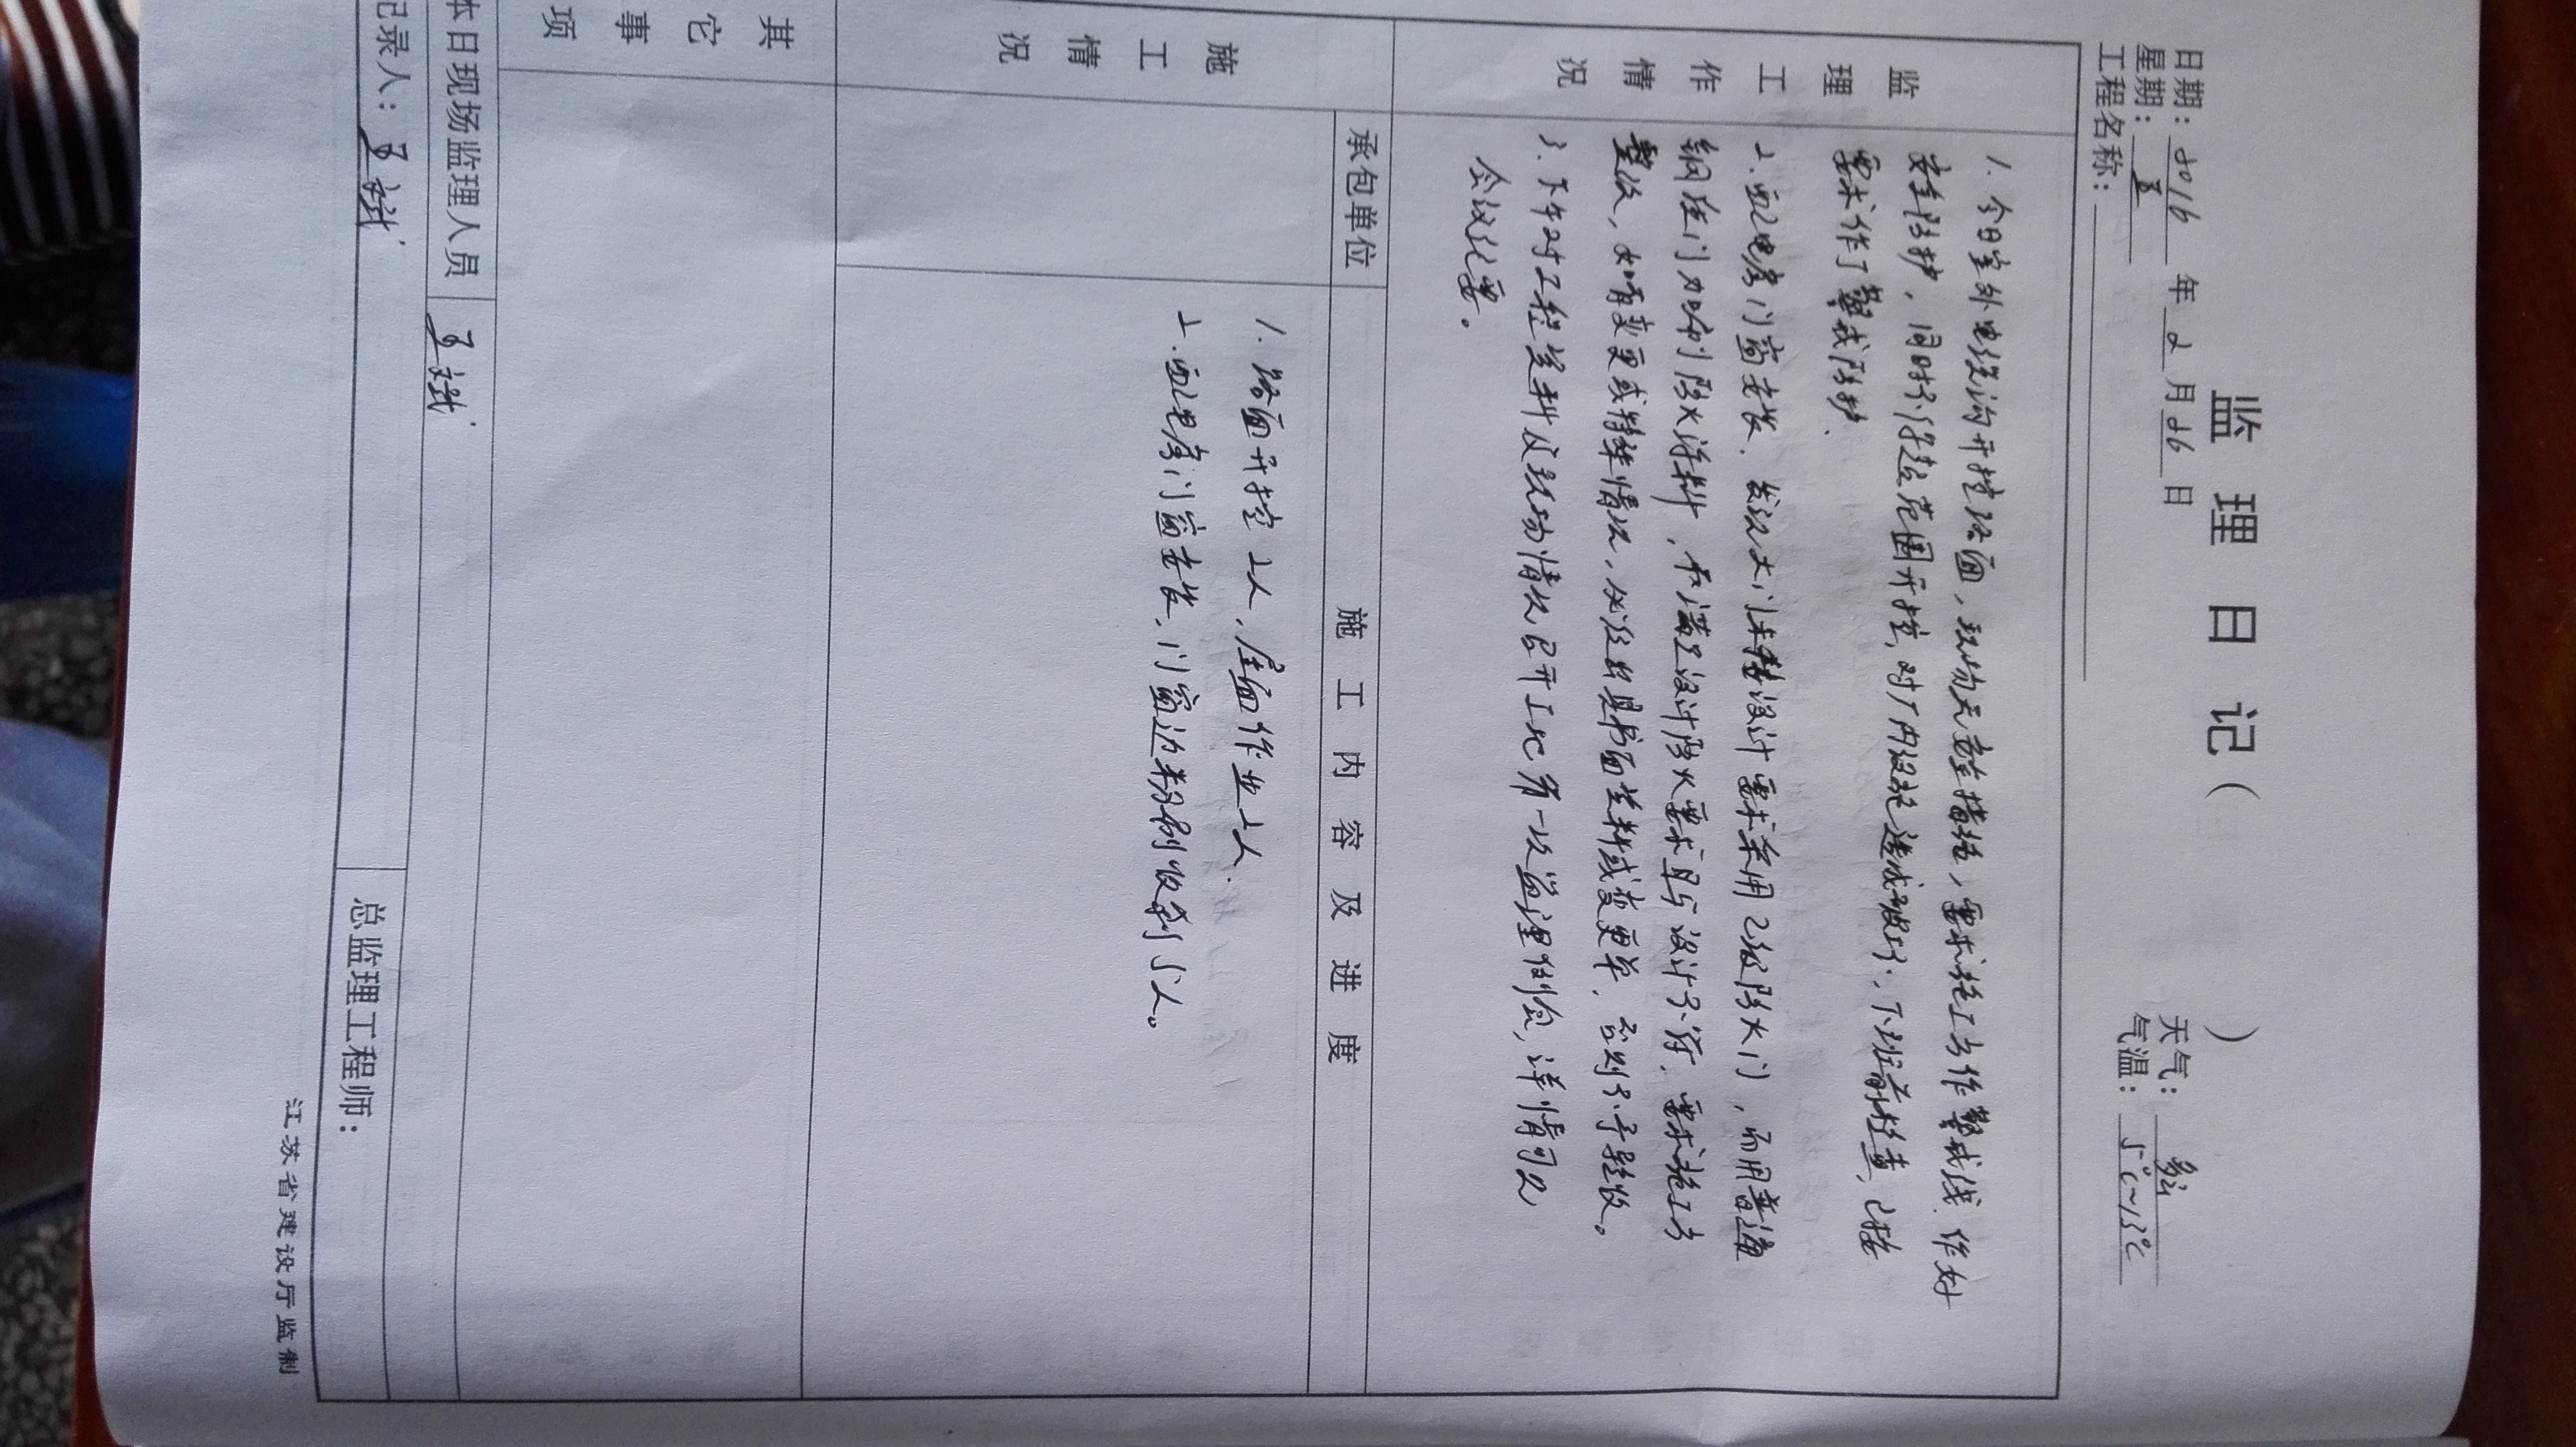 监理日记（ ）
日期：2016年2月26日 天气：多云
星期：五 气温：5℃~13℃
工程名称：
监理工作情况
1.今日室外电缆沟开挖路面，现场无安全措施，要求施工方作警戒线、作好
安全防护，同时不得超范围开挖，对厂内设施造成破坏．下班前检查，已按
要求作了警戒防护．
2.配电房门窗安装、发现大门未按设计要求采用乙级防火门，而用普通
钢质门加刷防火涂料，不满足设计防火要求且与设计不符．要求施工方
整改，如有变更或特殊情况，必须出具书面资料或变更单，否则不予验收。
3.下午对工程资料及现场情况召开工地第一次监理例会，详情可见
会议纪要。
承包单位 施工内容及进度
施工情况
1.路面开挖2人，屋面作业2人．
2.配电房门窗安装、门窗边粉刷收刹5人。
其它事项
本日现场监理人员
记录人： 总监理工程师：
江苏省建设厅监制